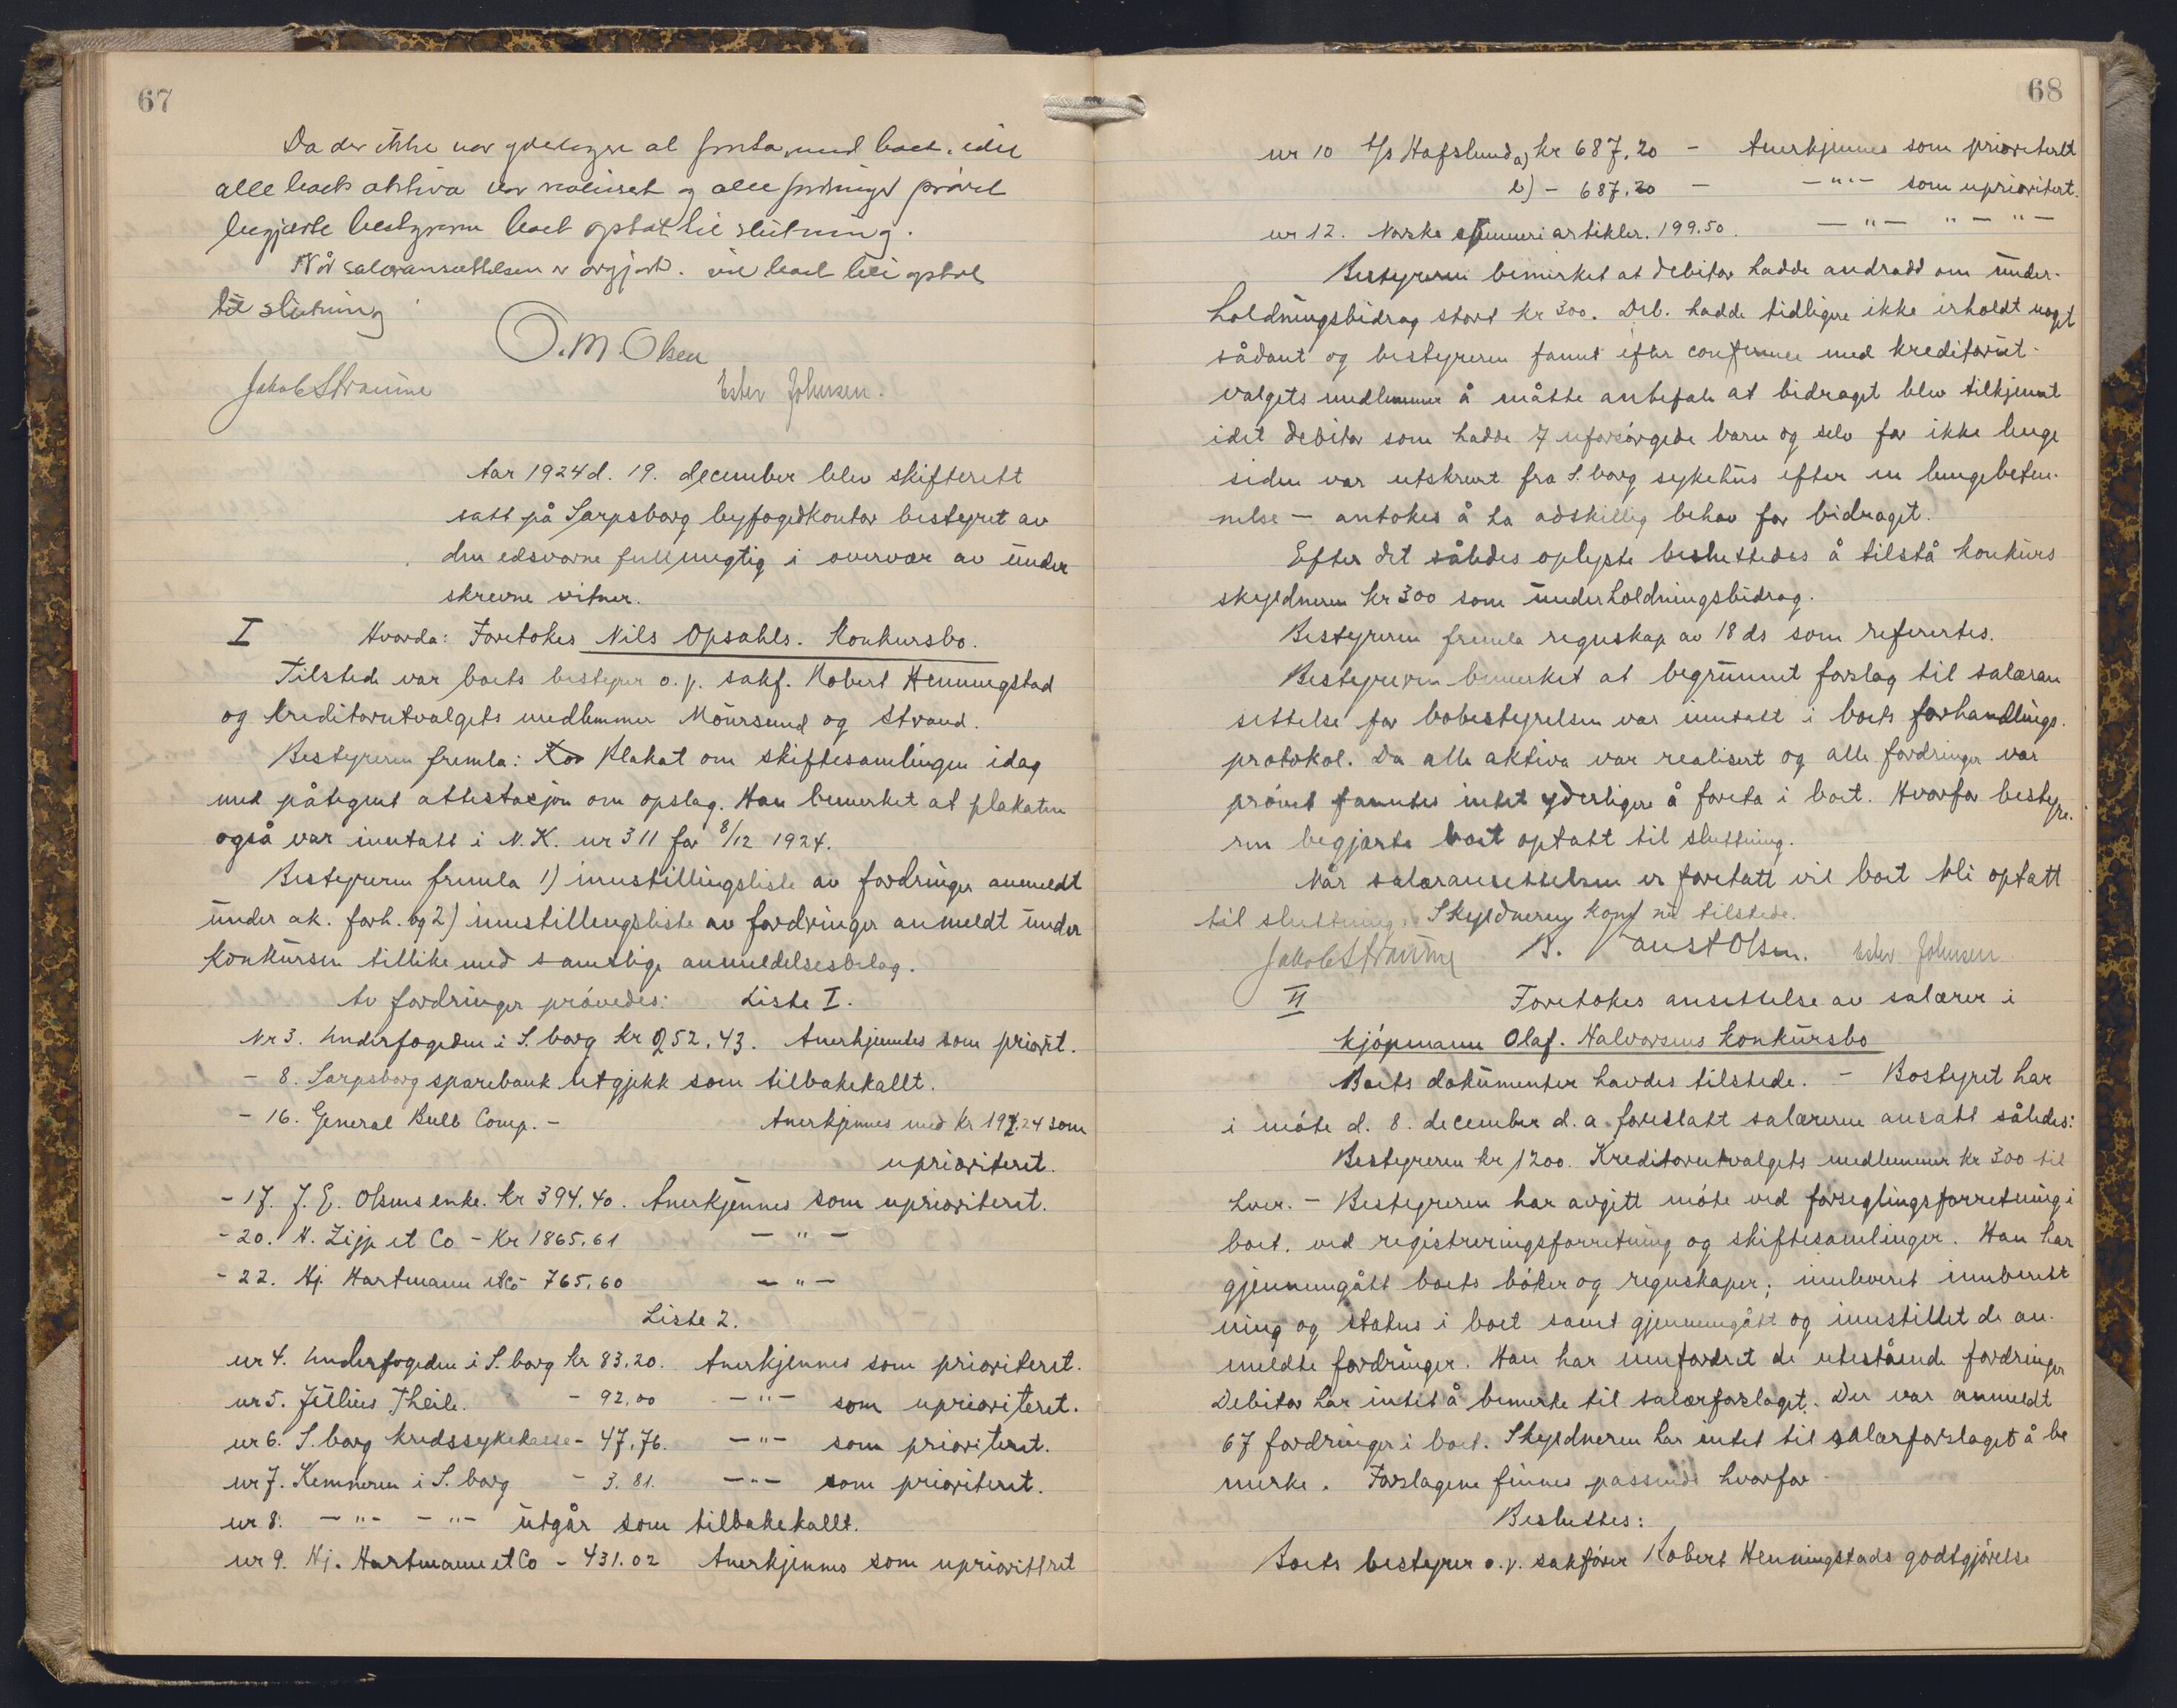 67
Da der ikke var yderligere at foreta med boet, idet
alle boets aktiva var realiseret og alle fordringer prøvet
begjærte bestyreren boet optat til slutning.
Når salæransættelsen er avgjort vil boet bli optat
til slutning
O. M. Olsen
Jakob Straume Ester Johnsen.
Aar 1924 d. 19. december blev skifterett
satt på Sarpsborg byfogedkontor bestyret av
den edsvorne fullmegtig i overvær av under
skrevne vitner.
I Hvorda: Foretokes Nils Opsahls. Konkursbo.
Tilstede var boets bestyrer o.r. sakf. Robert Henningstad
og kreditorutvalgets medlemmer Moursund og Strand.
Bestyreren fremla: Plakat om skiftesamlingen idag
med påtegnet attestasjon om opslag. Han bemerket at plakaten
også var inntatt i N.K. nr 311 for 8/12 1924.
Bestyreren fremla 1) innstillingsliste av fordringer anmeldt
under ak. forh. og 2) innstillingsliste av fordringer anmeldt under
konkursen tillike med samtlige anmeldelsesbilag.
Av fordringer prövedes: Liste I.
Nr 3. Underfogeden i S.borg kr 252,43. Anerkjendes som priorit.
- 8. Sarpsborg sparebank utgjekk som tilbakekallt.
- 16. General Bulb Comp. - Anerkjennes med kr 197.24 som
uprioriteret.
- 17. J. E. Olsens enke. kr 394.40. Anerkjennes som uprioriteret.
- 20. H. Zijp et Co - Kr 1865,61 - " -
- 22. Hj. Hartmann et Co - 765,60 - " -
Liste 2.
nr 4. Underfogeden i S.borg kr 83,20. Anerkjennes som prioriteret.
nr 5. Julius Theile. - 92,00 - " - som uprioriteret.
nr 6. S.borg kredssykekasse - 47,76. - " - som prioriteret.
nr 7. Kemneren i S.borg - 3.81. - " - som prioriteret.
nr 8. - " - - " - utgår som tilbakekallt.
nr 9. Hj. Hartmann et Co - 431.02 Anerkjennes som uprioritteret
68
nr 10 A/S Hafslund a) kr 687,20 - Anerkjennes som prioritertt
b) - 687,20 - - " - som uprioritert.
nr 12. Norske gummiartikler. 199.50. - " - " - " -
Bestyreren bemerket at debitor hadde andradd om under-
holdningsbidrag stort kr 300. Deb. hadde tidligere ikke erholdt noget
sådant og bestyreren fannt efter conferance med kreditorut-
valgets medlemmer å måtte anbefale at bidraget blev tilkjennt
idet debitor som hadde 7 uforsörgede barn og selv for ikke lenge
siden var utskrevt fra S.borg sykehus efter en lungebeten-
nelse - antokes å ha adskillig behov for bidraget.
Efter det således oplyste besluttedes å tilstå konkurs
skyldneren kr 300 som underholdningsbidrag.
Bestyreren fremla regnskap av 18 ds som referertes.
Bestyreren bemerket at begrunnet forslag til salæran
settelse for bobestyrelsen var inntatt i boets forhandlings-
protokol. Da alle aktiva var realisert og alle fordringer var
prövet fanntes intet yderligere å foreta i boet. Hvorfor bestyre-
ren begjærte boet optatt til sluttning.
Når salæransettelsen er foretatt vil boet bli optatt
til sluttning. Skyldneren kom nu tilstede.
Jakob Straume N. Faust Olsen. Ester Johnsen
II Foretokes ansettelse av salærer i
kjöpmann Olaf. Halvorsens konkursbo
Boets dokumenter havdes tilstede. - Bostyret har
i möte d. 8. december d.a. foreslatt salærerne ansatt således:
Bestyreren kr 1200. Kreditorutvalgets medlemmer kr 300 til
hver. - Bestyreren har avgitt möte ved forseglingsforretning i
boet, ved registreringsforretning og skiftesamlinger. Han har
gjennemgått boets böker og regnskaper; innleveret innberett
ning og status i boet samt gjennemgått og innstillet de an-
meldte fordringer. Han har innfordret de utestående fordringer
Debitor har intet å bemerke til salærforslaget. Der var anmeldt
67 fordringer i boet. Skyldneren har intet til salærforslaget å be
merke. Forslagene finnes passende hvorfor
Besluttes:
Boets bestyrer o.r. sakförer Robert Henningstads godtgjörelse